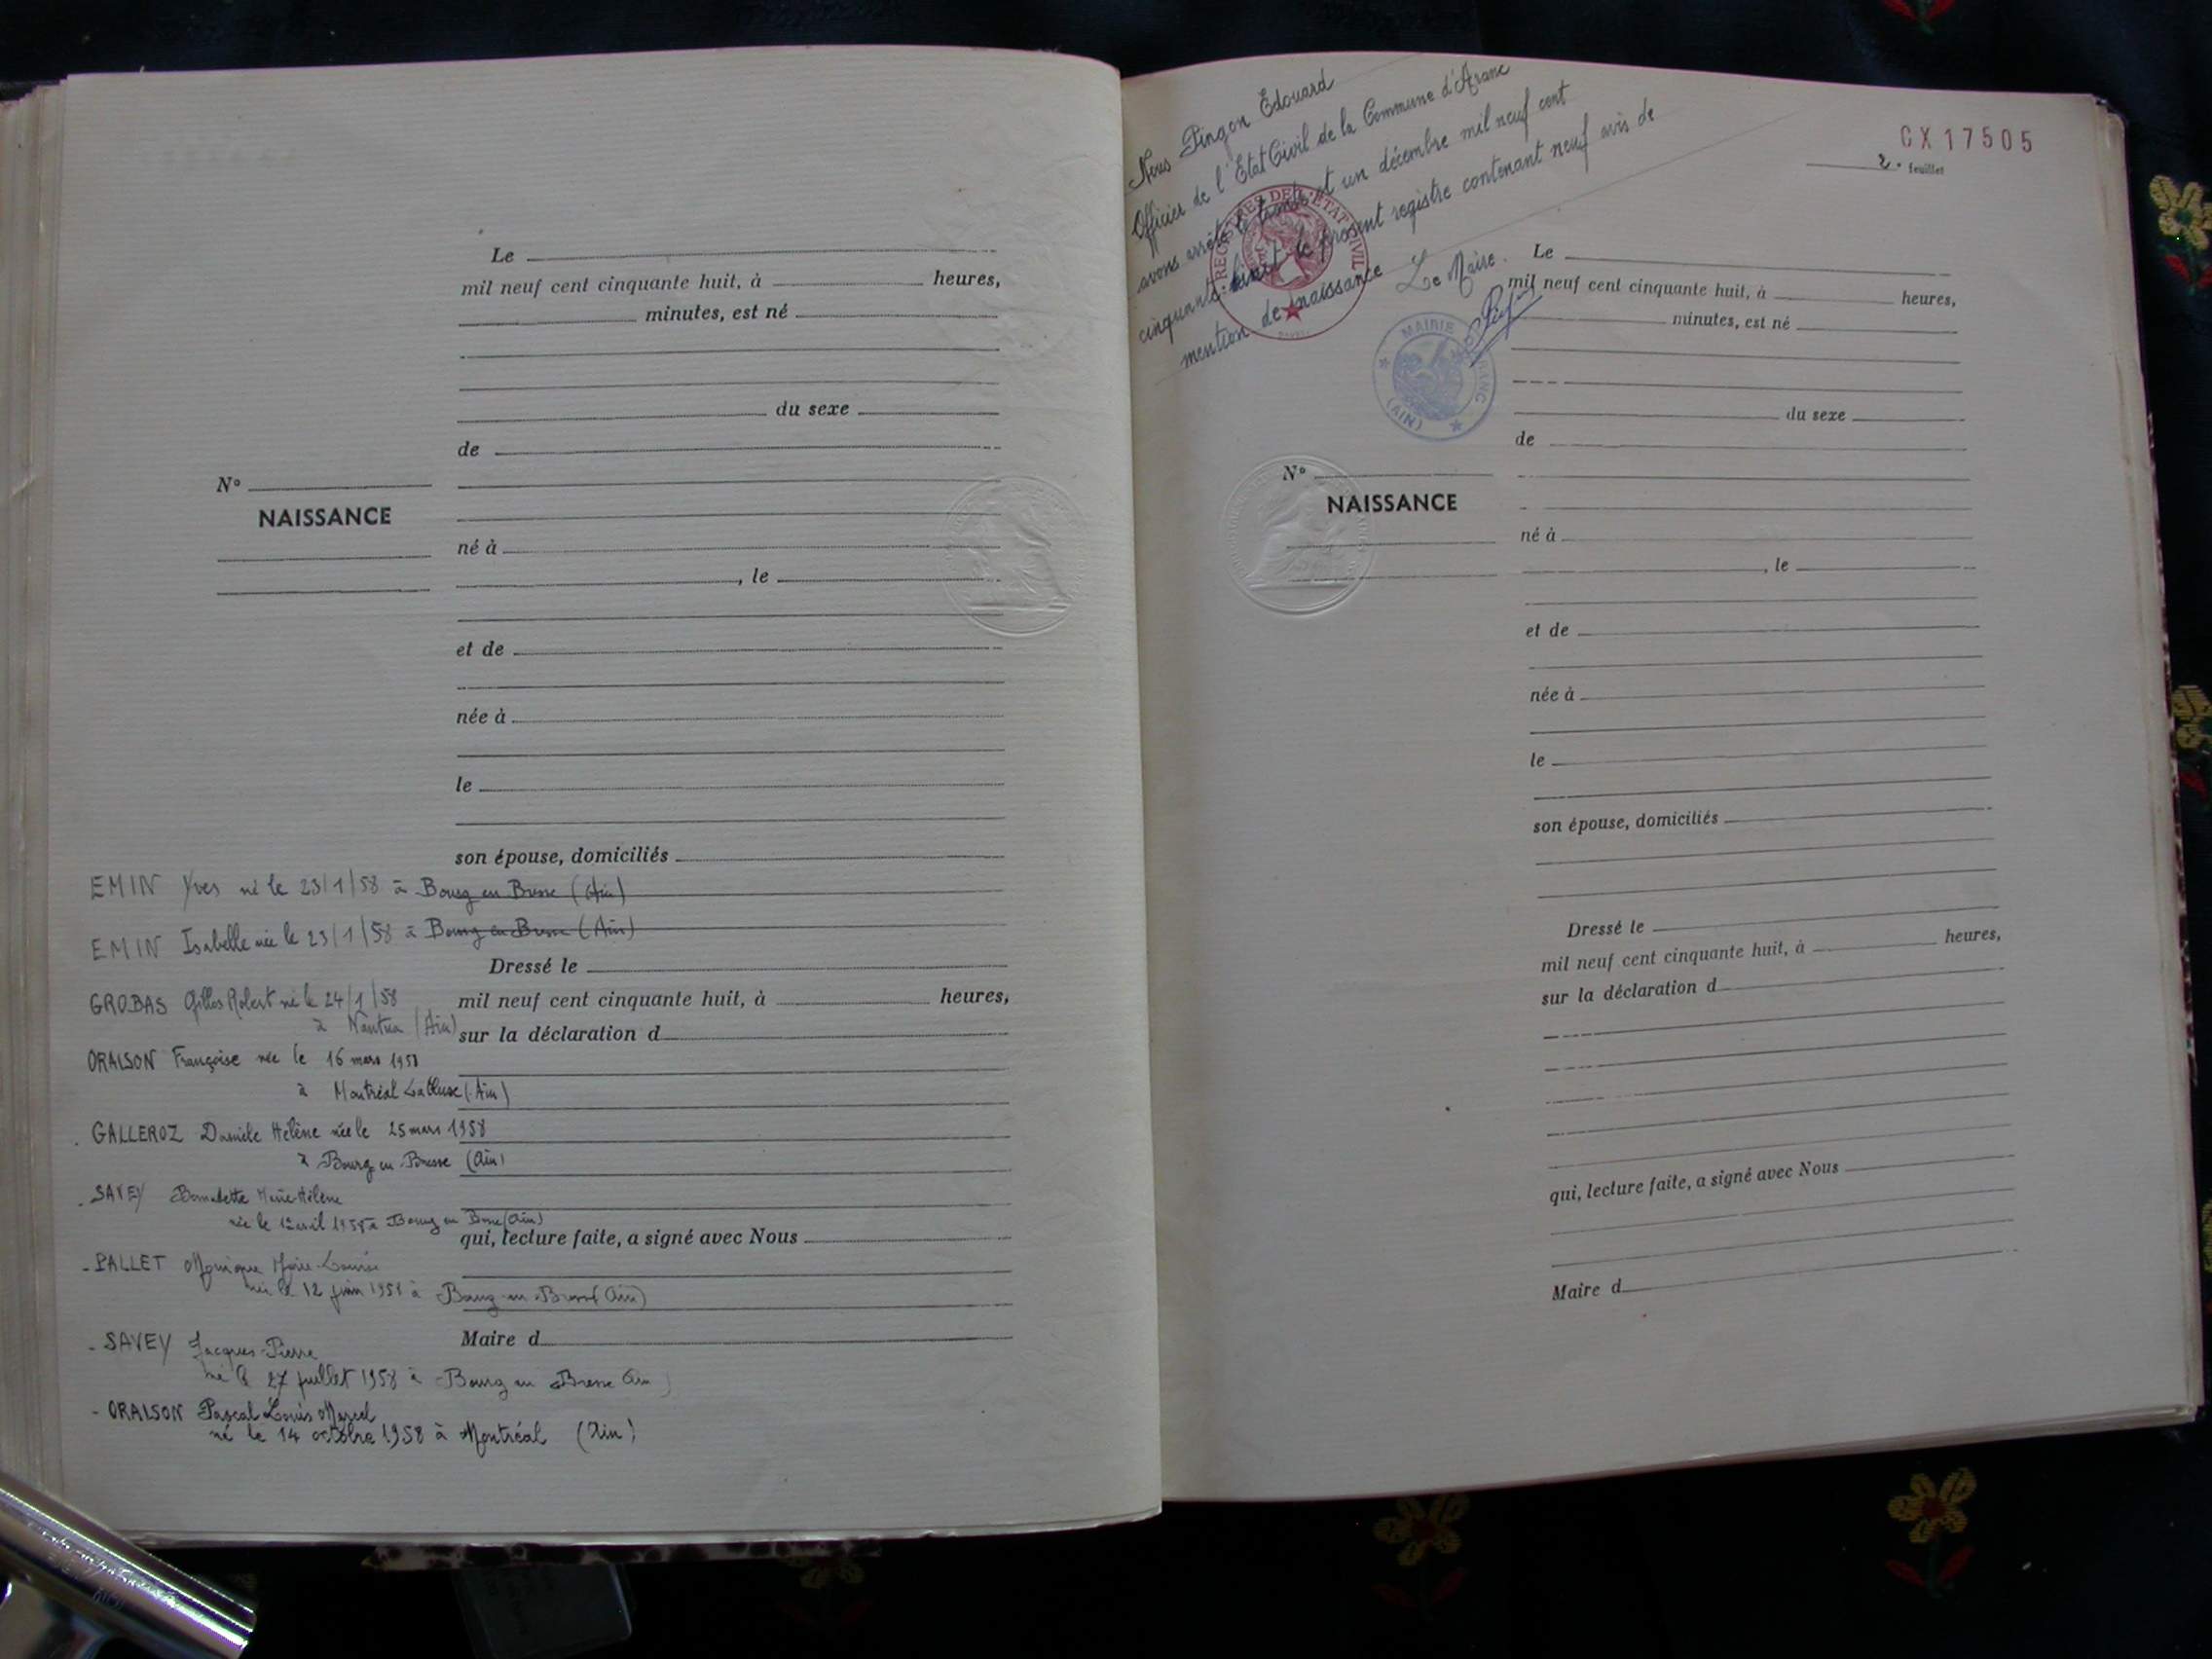 Le
mil neuf cent cinquante huit, à heures,
minutes, est né
du sexe
de
N°
NAISSANCE
né à
, le
et de
née à
le
son épouse, domiciliés
EMIN Yves né le 23/1/58 à Bourg en Bresse (Ain)
EMIN Isabelle née le 23/1/58 à Bourg en Bresse (Ain)
Dressé le
GROBAS Gilles Robert né le 24/1/58
mil neuf cent cinquante huit, à heures,
à Nantua (Ain)
sur la déclaration d
ORAISON Françoise née le 16 mars 1958
à Montréal La Cluse (Ain)
GALLEROZ Danièle Hélène née le 25 mars 1958
à Bourg en Bresse (Ain)
- SAVEY Bernadette Marie-Hélène
née le 1er avril 1958 à Bourg en Bresse (Ain)
qui, lecture faite, a signé avec Nous
- PALLET Monique Marie-Louise
née le 12 juin 1958 à Bourg-en-Bresse (Ain)
Maire d
- SAVEY Jacques-Pierre
né le 27 juillet 1958 à Bourg en Bresse Ain
- ORAISON Pascal Louis Marcel
né le 14 octobre 1958 à Montréal (Ain)
Nous Pingon Edouard
Officier de l'Etat Civil de la Commune d'Aranc
avons arrêté le trente et un décembre mil neuf cent
cinquante huit le présent registre contenant neuf avis de
mention de naissance
Le Maire.
REGISTRES DE L'ETAT CIVIL
MAIRIE D'ARANC
(AIN)
CX 17505
2. feuillet
Le
mil neuf cent cinquante huit, à heures,
minutes, est né
du sexe
de
N°
NAISSANCE
né à
, le
et de
née à
le
son épouse, domiciliés
Dressé le
mil neuf cent cinquante huit, à heures,
sur la déclaration d
qui, lecture faite, a signé avec Nous
Maire d